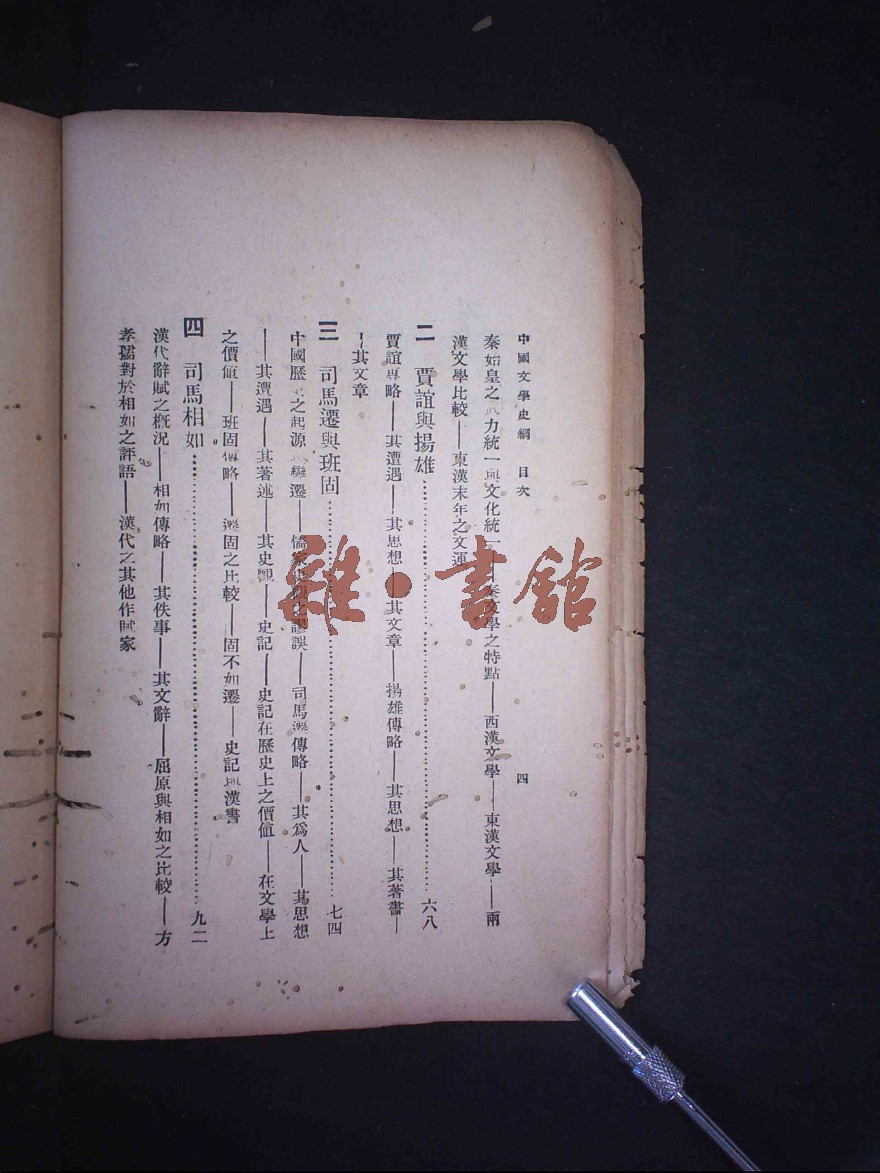 中國文學史綱　目次　四
秦始皇之 力統一與文化統一——秦文學之特點——西漢文學——東漢文學——兩
漢文學比較——東漢末年之文運
二　賈誼與揚雄……六八
賈誼傳略——其遭遇——其思想——其文章——揚雄傳略——其思想——其著書—
—其文章
三　司馬遷與班固……七四
中國歷史之起源 變遷——儒家 之謬誤——司馬遷傳略——其爲人——其思想
——其遭遇——其著述——其史觀——史記——史記在歷史上之價值——在文學上
之價值——班固傳略——遷固之比較——固不如遷——史記與漢書
四　司馬相如……九二
漢代辭賦之槪況——相如傳略——其佚事——其文辭——屈原與相如之比較——方
孝孺對於相如之評語——漢代之其他作賦家
雜·書館